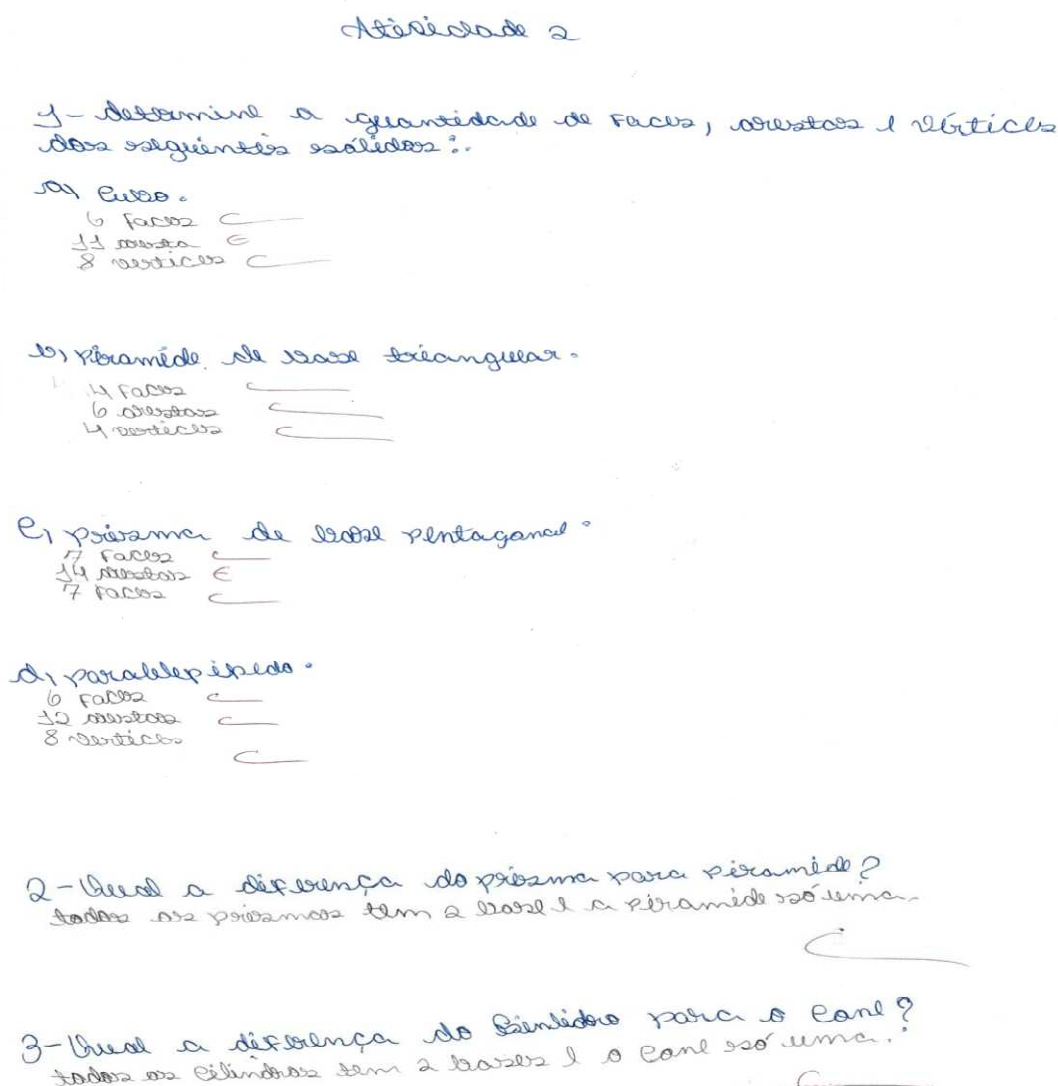 Atividade 2
1- determine a quantidade de faces, arestas e vértices
dos seguintes sólidos:.
a) Cubo.
6 faces C
11 aresta E
8 vertices C
b) piramide de base triangular.
4 faces C
6 arestas C
4 vertices C
C) prisma de base pentagonal.
7 faces C
14 arestas E
7 faces C
d) paralelepipedo.
6 faces C
12 arestas C
8 vertices
C
2- Qual a diferença do prisma para piramide?
todos os prismas tem 2 base e a piramide só uma.
C
3- Qual a diferença do para o cone?
todos os cilindros tem 2 bases e o cone só uma.
C